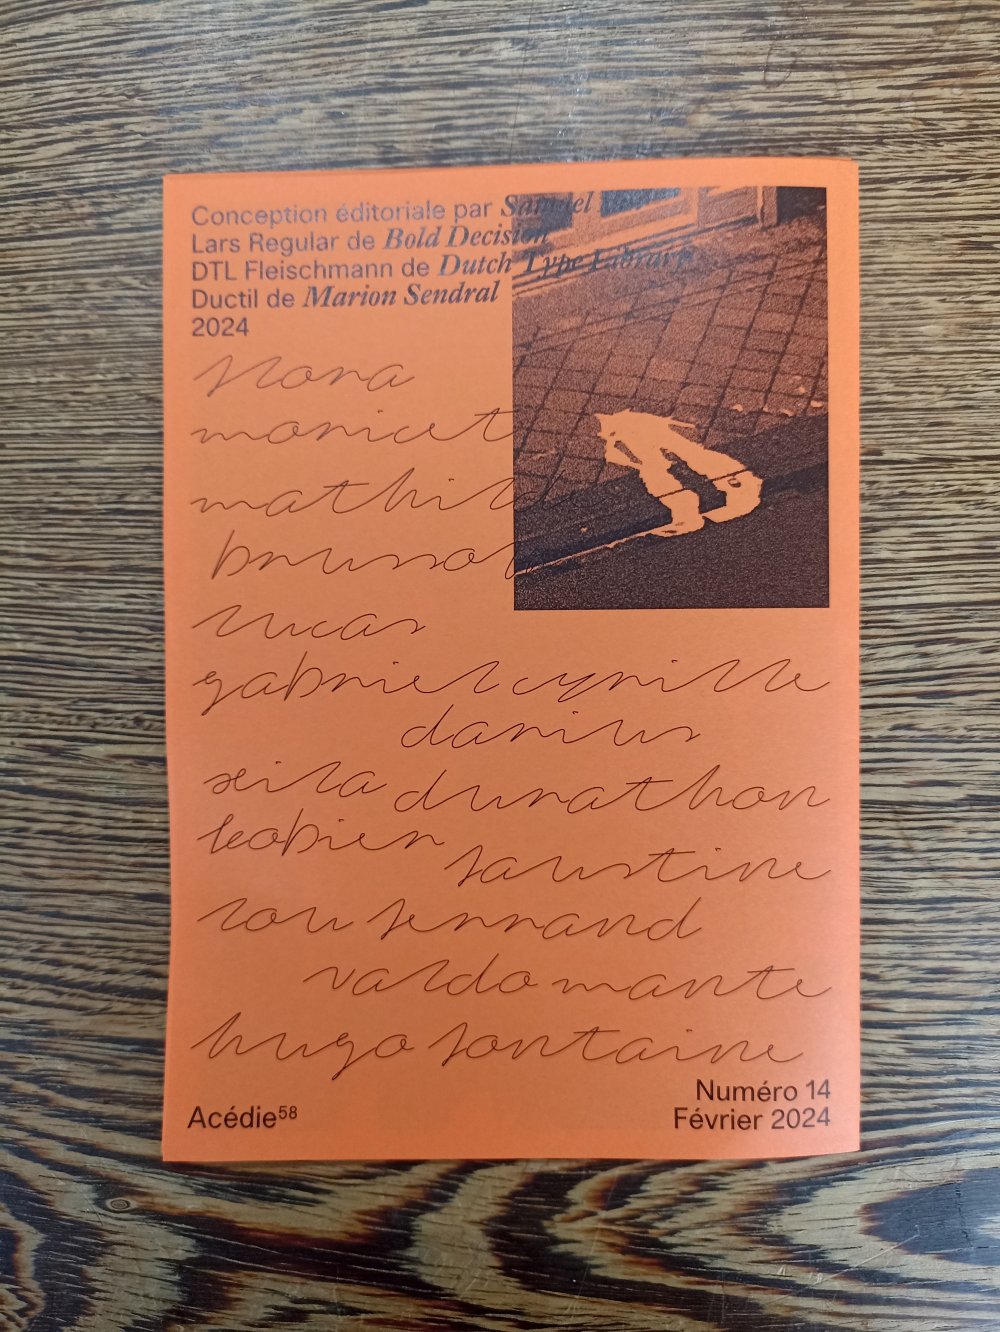 Conception éditoriale par Samuel
Lars Regular de Bold Decision
DTL Fleischmann de Dutch Type Library
Ductil de Marion Sendral
2024
Nora
moricet
mathilde
lucas
gabriel cyrille
darius
durathon
faustine
lou ferrand
valdo mante
hugo fontaine
Numéro 14
Acédie⁵⁸ Février 2024